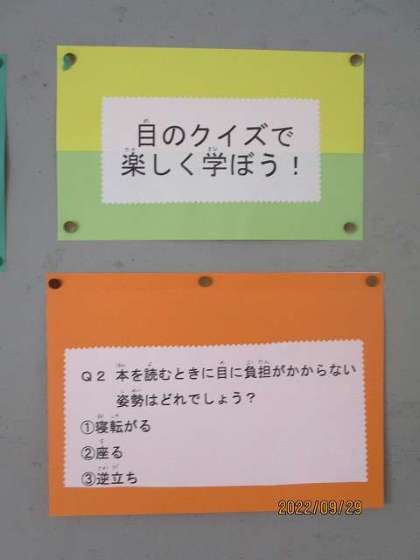 目のクイズで
楽しく学ぼう！
Q2 本を読むときに目に負担がかからない
姿勢はどれでしょう？
①寝転がる
②座る
③逆立ち
2022/09/29